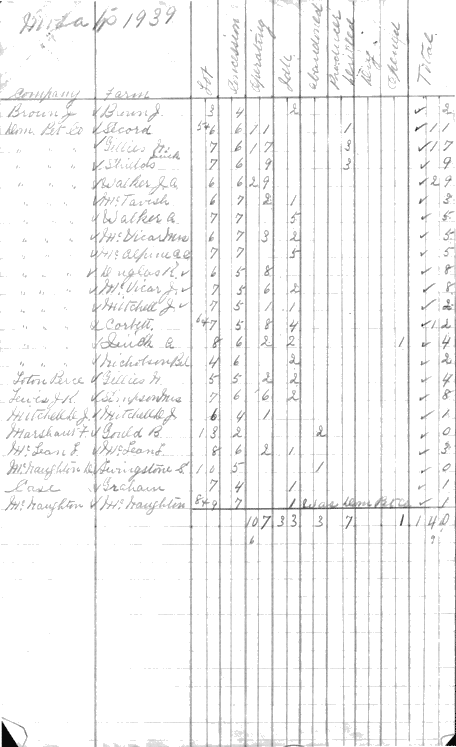 Mosa Tp 1939
Company Farm Lot Concession Operating Idle Abandoned Producer Drilled Dry Opened Total
Brown J ✓ Brown J. 3 4 2 ✓ 2
Dom. Pet Co ✓ Secord 5+6 6 11 1 ✓ 11
" " " ✓ Gillies 7 6 17 3 ✓ 17
" " " ✓ Shields 7 6 9 3 ✓ 9
" " " ✓ Walker J.A. 6 6 29 ✓ 29
" " " ✓ McTavish 6 7 2 1 ✓ 3
" " " ✓ Walker A. 7 7 5 ✓ 5
" " " ✓ McVicar Mrs 6 7 3 2 ✓ 5
" " " ✓ McAlpine 7 7 5 ✓ 5
" " " ✓ Douglas R. ✓ 6 5 8 ✓ 8
" " " ✓ McVicar J. ✓ 7 5 6 2 ✓ 8
" " " ✓ Mitchell J ✓ 7 5 1 1 ✓ 2
" " " ✓ Corbett. 6+7 5 8 4 ✓ 12
" " " ✓ Quick A 8 6 2 2 1 ✓ 4
" " " ✓ Nicholson 4 6 2 ✓ 2
✓ Gillies N. 5 5 2 2 ✓ 4
J.R. ✓ Simpson Mrs 7 6 6 2 ✓ 8
Mitchell J ✓ Mitchell J 6 4 1 ✓ 1
Marshall F ✓ Gould B. 13 2 2 ✓ 0
McLean L ✓ McLean L 8 6 2 1 ✓ 3
McNaughton ✓ Livingstone 10 5 1 ✓ 0
Case ✓ Graham 7 4 1 ✓ 1
McNaughton ✓ McNaughton 8+9 7 1 Was Dom Pet Co ✓ 1
107 33 3 7 1 140
6 9